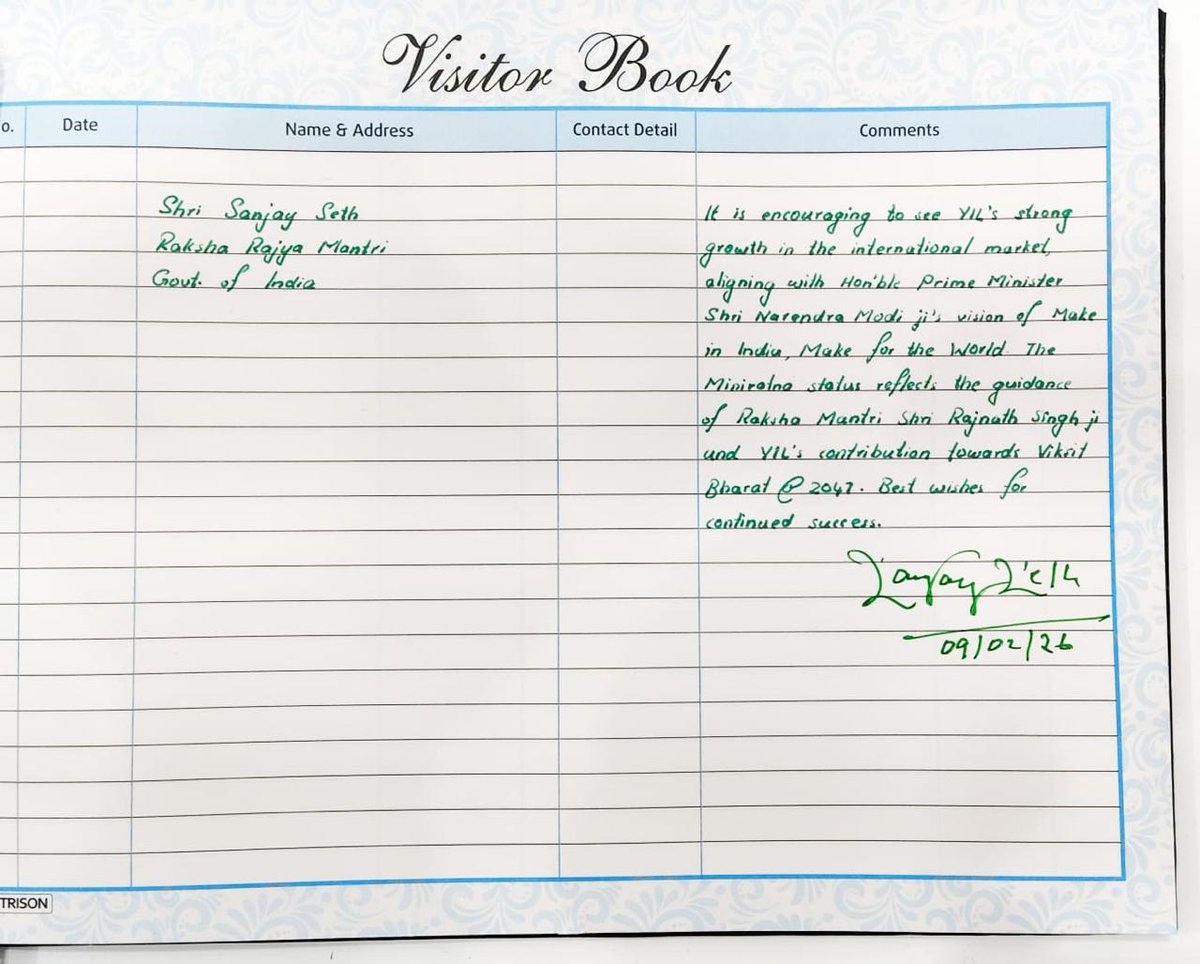 Visitor Book
o. Date Name & Address Contact Detail Comments
Shri Sanjay Seth
Raksha Rajya Mantri
Govt. of India
It is encouraging to see YIL's strong
growth in the international market,
aligning with Hon'ble Prime Minister
Shri Narendra Modi ji's vision of Make
in India, Make for the World. The
Miniratna status reflects the guidance
of Raksha Mantri Shri Rajnath Singh ji
and YIL's contribution towards Viksit
Bharat @ 2047. Best wishes for
continued success.
Sanjay Seth
09/02/26
TRISON